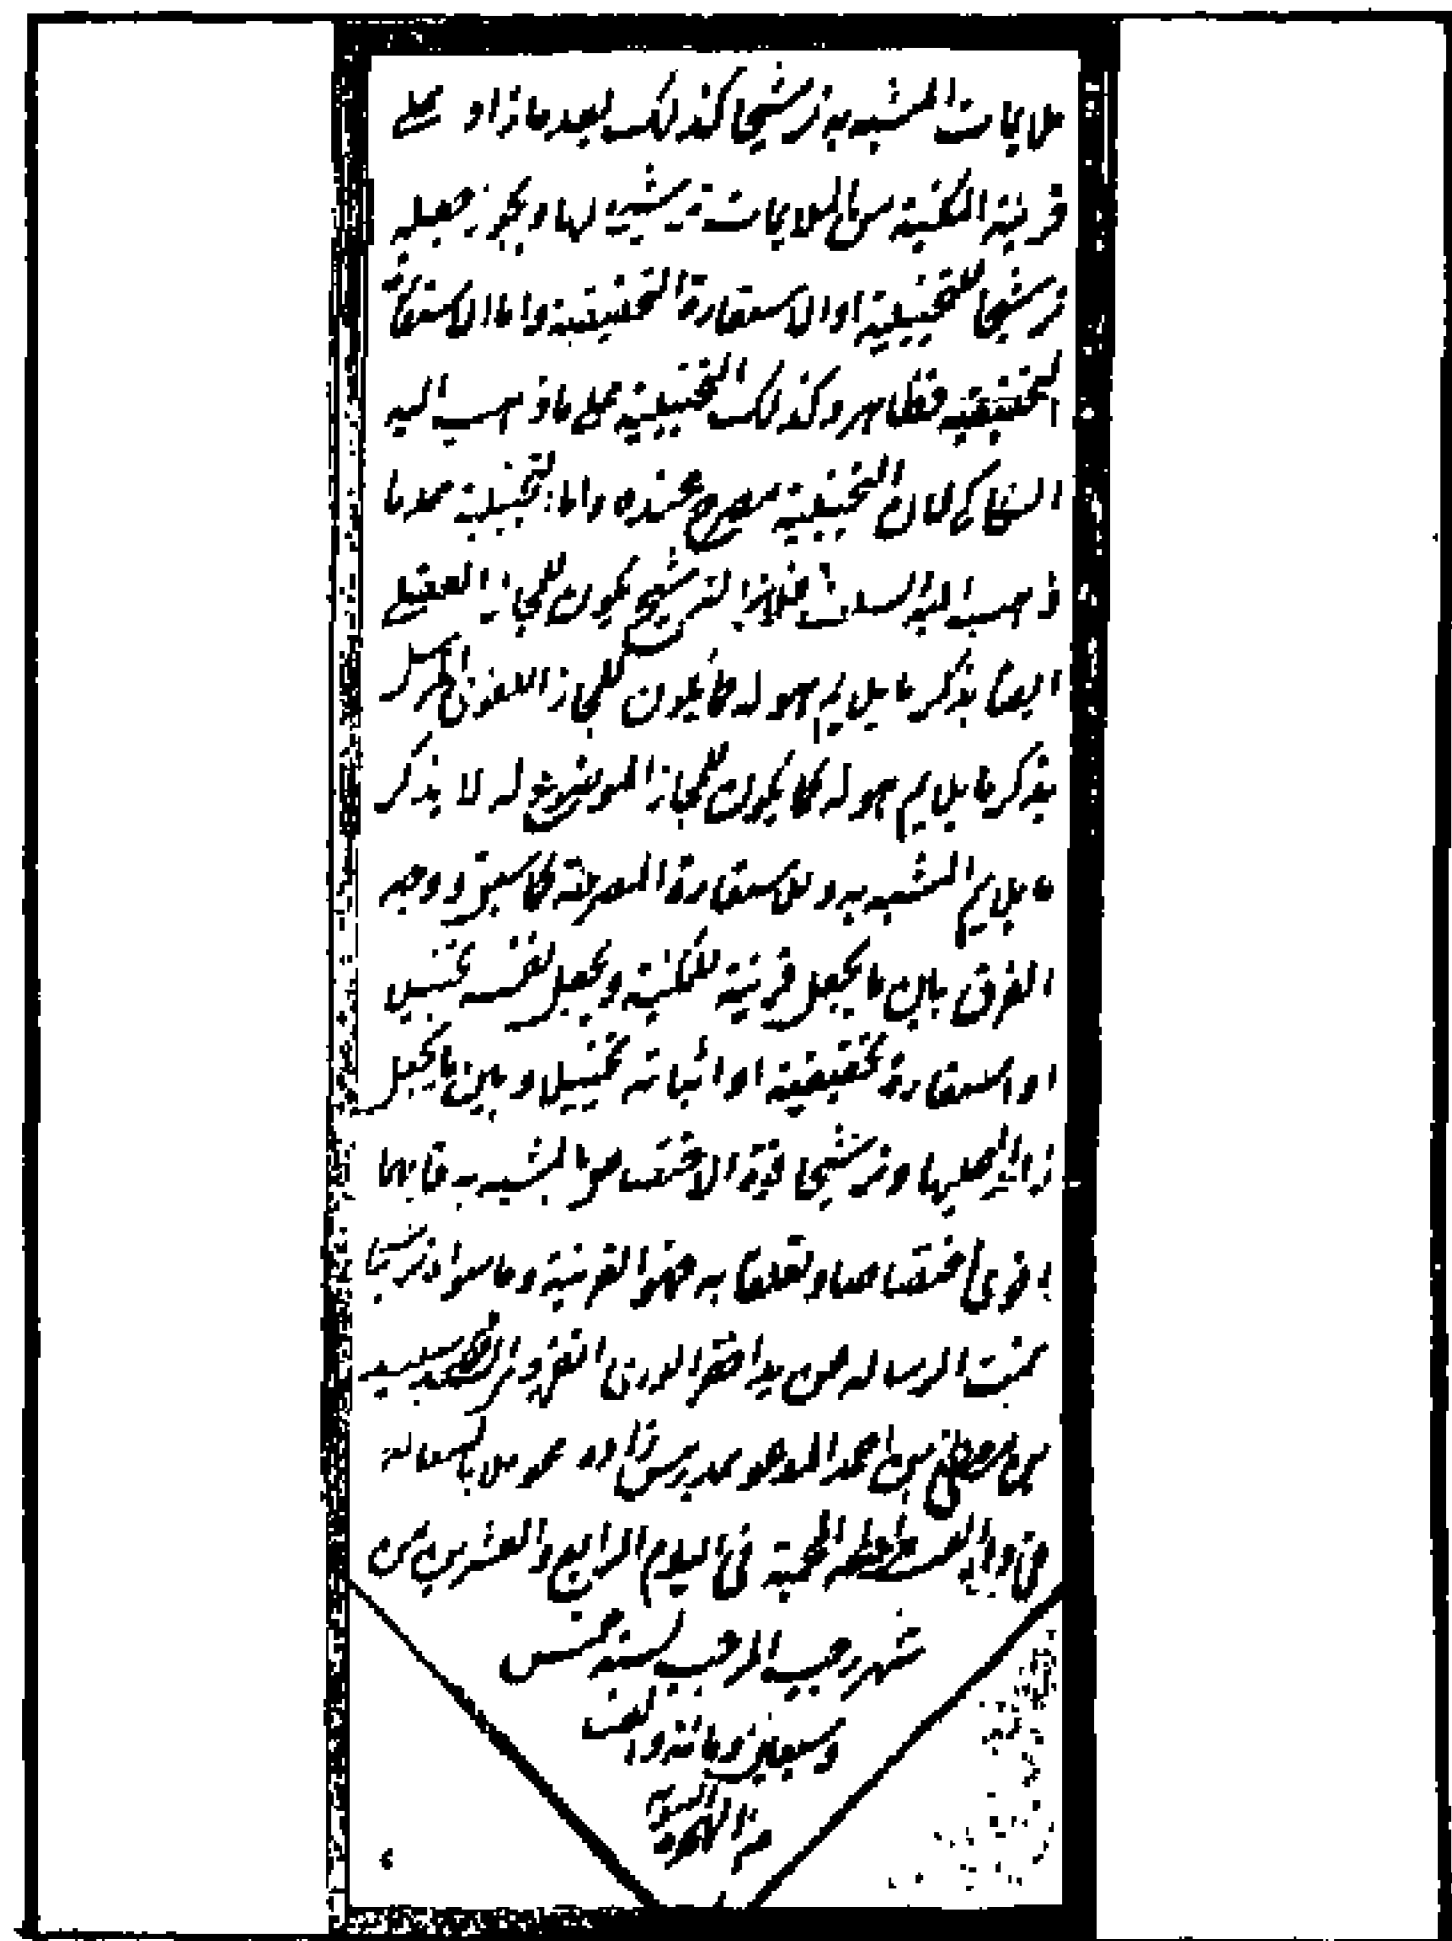 ملايمات المشبه به ترشيحا كذلك يعد ما زاد على
قرينة المكنية من الملايمات ترشيحا لها ويجوز جعله
ترشيحا للتخييلية او الاستعارة التحقيقية واما الاستعارة
التحقيقية فظاهر وكذلك التخييلية على ما ذهب اليه
السكاكى لان التخييلية مصرح عنده واما التخييلية على ما
ذهب اليه السلف فلان الترشيح يكون للمجاز العقلى
ايضا بذكر ما يلايم هو له كما يكون للمجاز اللغوى المرسل
بذكر ما يلايم هو له كما يكون للمجاز الموضوع له لا بذكر
ما يلايم المشبه به وللاستعارة المصرحة كما سبق ووجه
الفرق بين ما يجعل قرينة للمكنية ويجعل نفسه تخييل
او استعارة تحقيقية او اثباته تخييلا وبين ما يجعل
زايدا عليها وترشيحا قوة الاختصاص بالمشبه به فايهما
اقوى اختصاصا وتعلقا به فهو القرينة وما سواه ترشيحا
تمت الرساله عن يد افقر الورى
بن مصطفى بن احمد المدعو بمدرس زاده
فى اليوم الرابع والعشرين من
شهر رجب المرجب لسنة خمس
وسبعين ومائة والف
من الهجرة النبوية